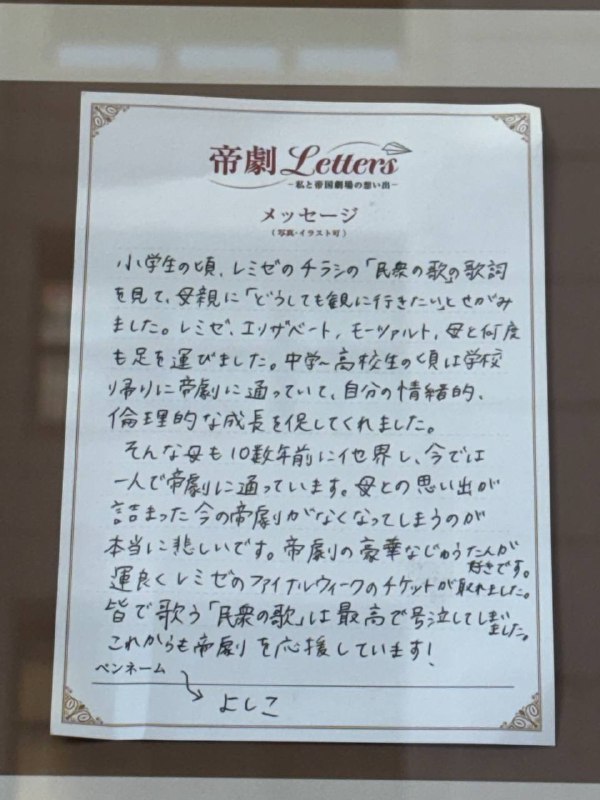 帝劇 Letters
−私と帝国劇場の想い出−
メッセージ
(写真・イラスト可)
小学生の頃、レミゼのチラシの「民衆の歌」の歌詞
を見て、母親に「どうしても観に行きたい」とせがみ
ました。レミゼ、エリザベート、モーツァルト、母と何度
も足を運びました。中学〜高校生の頃は学校
帰りに帝劇に通っていて、自分の情緒的、
倫理的な成長を促してくれました。
そんな母も10数年前に他界し、今では
一人で帝劇に通っています。母との思い出が
詰まった今の帝劇がなくなってしまうのが
本当に悲しいです。帝劇の豪華なじゅうたんが好きです。
運良くレミゼのファイナルウィークのチケットが取れました。
皆で歌う「民衆の歌」は最高で号泣してしまいました。
これからも帝劇を応援しています!
ペンネーム
よしこ